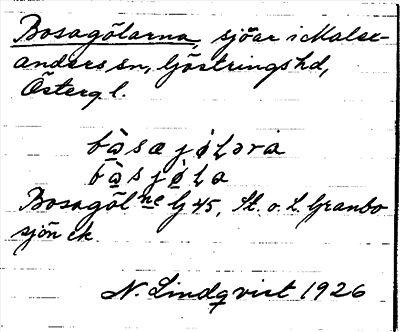 Bosagölarna, sjöar i Malex-
anders sn, Göstrings hd,
Östergl.
bòsajölara
bòsjöla
Bosagöl ne G 45, St. o. L. Granbo
sjön ek.
N. Lindqvist 1926